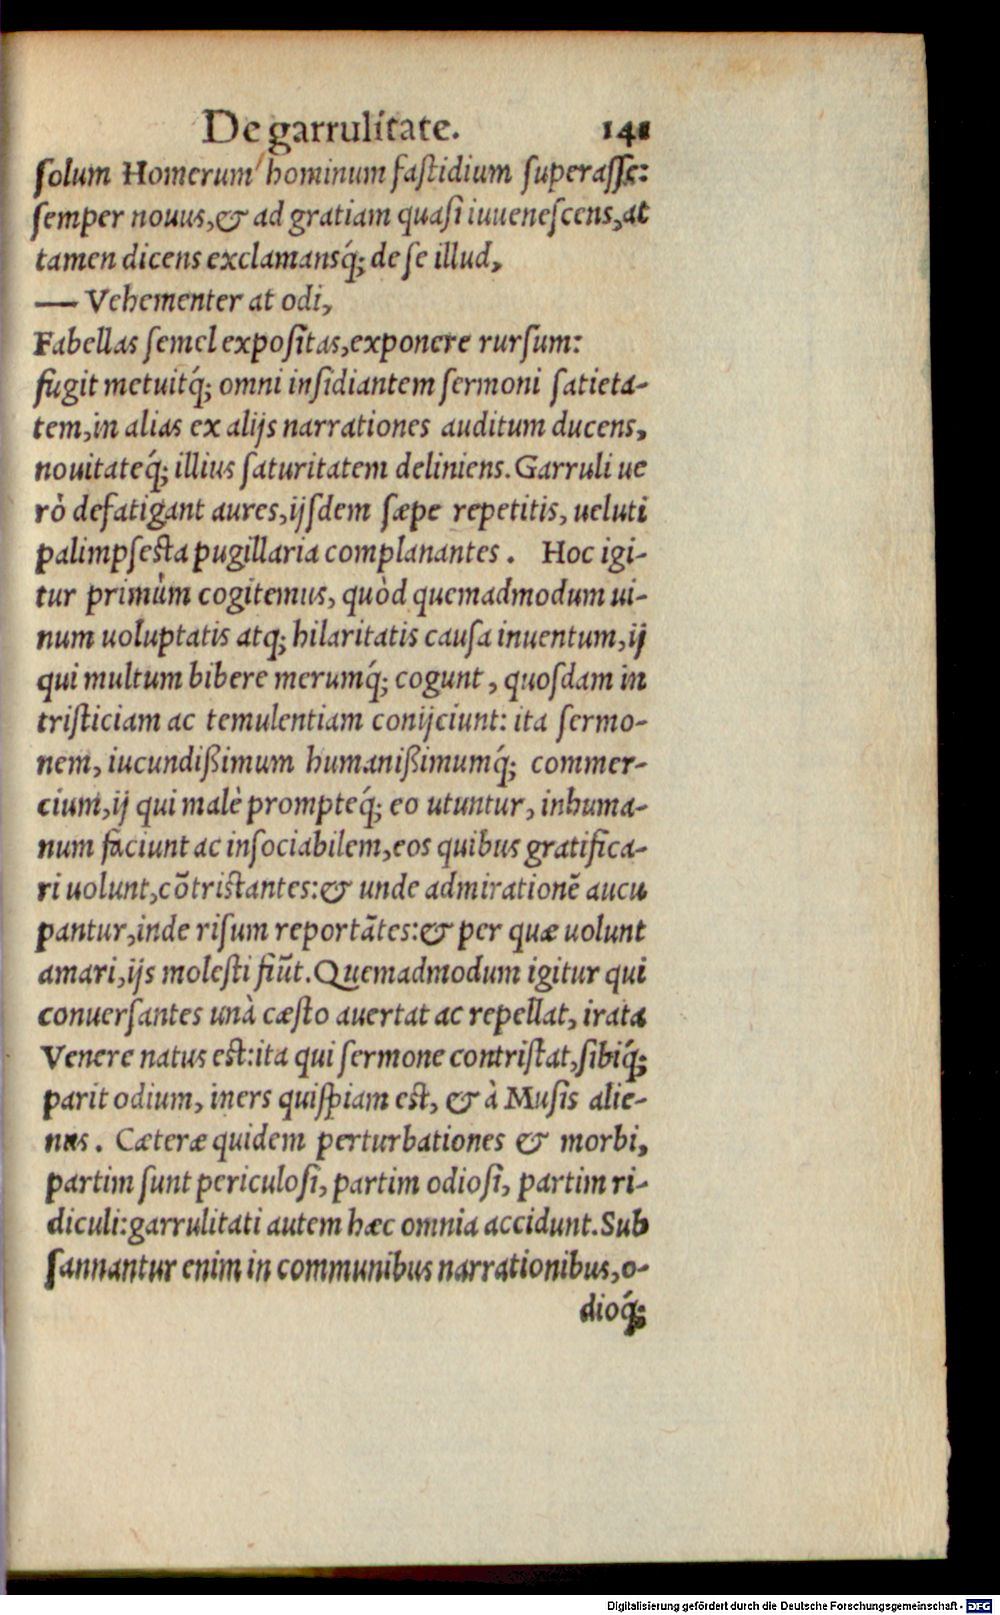 De garrulitate. 141
solum Homerum hominum fastidium superasse:
semper nouus,& ad gratiam quasi iuuenescens,at
tamen dicens exclamansq́; de se illud,
— Vehementer at odi,
Fabellas semel expositas,exponere rursum:
fugit metuitq́; omni insidiantem sermoni satieta-
tem,in alias ex alijs narrationes auditum ducens,
nouitateq́; illius saturitatem deliniens. Garruli ue
rò defatigant aures,ijsdem sæpe repetitis, ueluti
palimpsesta pugillaria complanantes . Hoc igi-
tur primùm cogitemus, quòd quemadmodum ui-
num uoluptatis atq; hilaritatis causa inuentum,ij
qui multum bibere merumq́; cogunt , quosdam in
tristiciam ac temulentiam conijciunt: ita sermo-
nem, iucundißimum humanißimumq́; commer-
cium,ij qui malè prompteq́; eo utuntur, inhuma-
num faciunt ac insociabilem,eos quibus gratifica-
ri uolunt,cõtristantes:& unde admirationẽ aucu
pantur,inde risum reportãtes:& per quæ uolunt
amari,ijs molesti fiũt. Quemadmodum igitur qui
conuersantes unà cæsto auertat ac repellat, irata
Venere natus est:ita qui sermone contristat,sibiq́;
parit odium, iners quispiam est, & à Musis alie-
nus . Cæteræ quidem perturbationes & morbi,
partim sunt periculosi, partim odiosi, partim ri-
diculi:garrulitati autem hæc omnia accidunt. Sub
sannantur enim in communibus narrationibus,o-
dioq́;
Digitalisierung gefördert durch die Deutsche Forschungsgemeinschaft - DFG